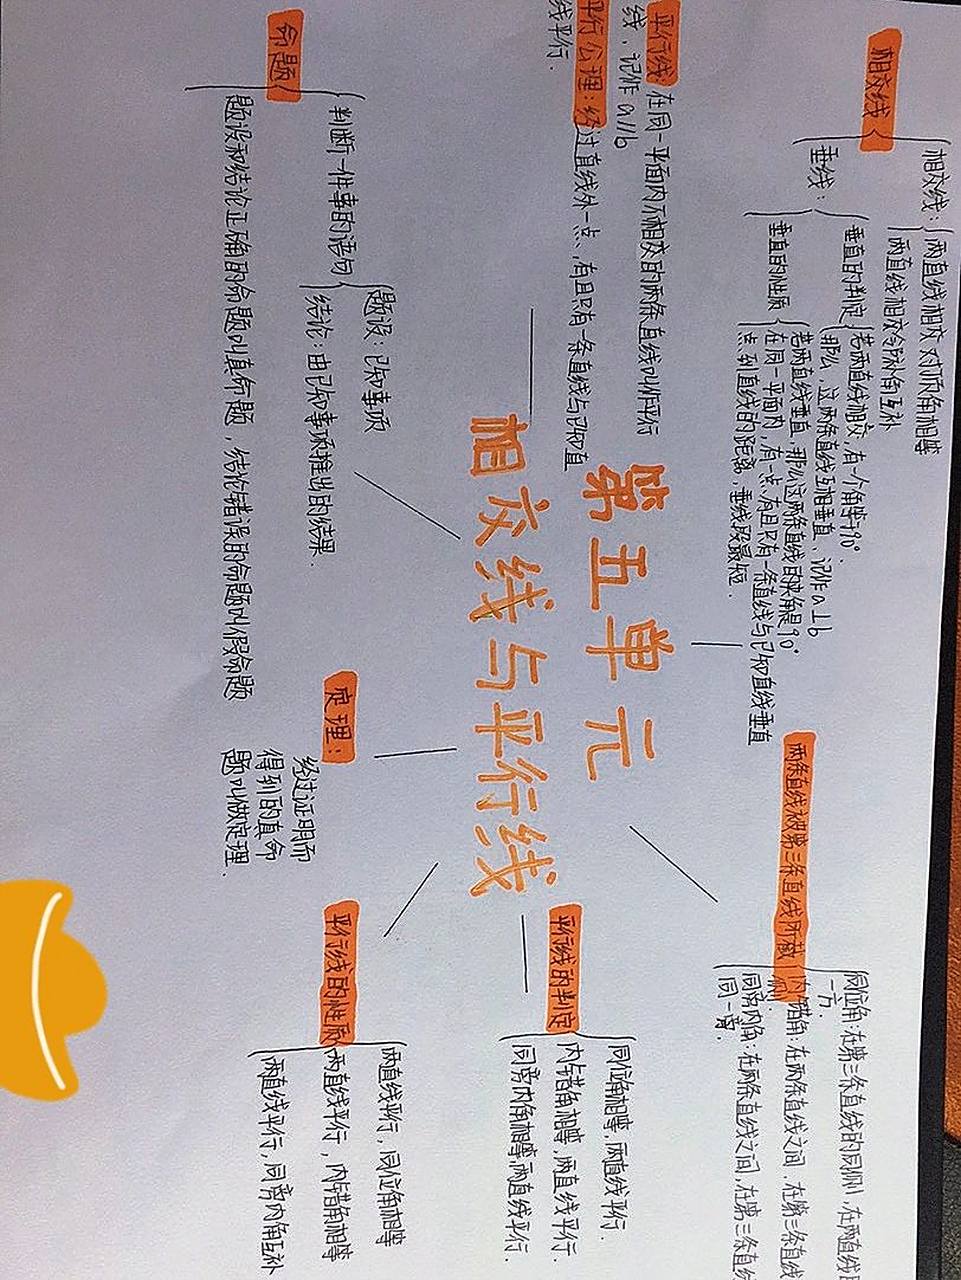 第五单元
相交线与平行线
相交线
相交线:
两直线相交对顶角相等
两直线相交邻补角互补
垂线:
垂直的判定
若两直线相交,有一个角等于90°.
那么,这两条直线互相垂直,记作a⊥b
垂直的性质
若两直线垂直,那么这两条直线的夹角是90°
在同一平面内,有一点,有且只有一条直线与已知直线垂直
点到直线的距离,垂线段最短.
两条直线被第三条直线所截
同位角:在第三条直线的同侧,在两直线
一方.
内错角:在两条直线之间,在第三条直线
同旁内角:在两条直线之间,在第三条直线
同一旁.
平行线:在同一平面内不相交的两条直线叫作平行
线,记作a//b
平行公理:经过直线外一点,有且只有一条直线与已知直
线平行.
平行线的判定
同位角相等,两直线平行.
内错角相等,两直线平行.
同旁内角相等,两直线平行.
命题
判断一件事的语句
题设:已知事项
结论:由已知事项推出的结果.
题设和结论正确的命题叫真命题,结论错误的命题叫假命题
定理:
经过证明而
得到的真命
题叫做定理.
平行线的性质
两直线平行,同位角相等
两直线平行,内错角相等
两直线平行,同旁内角互补